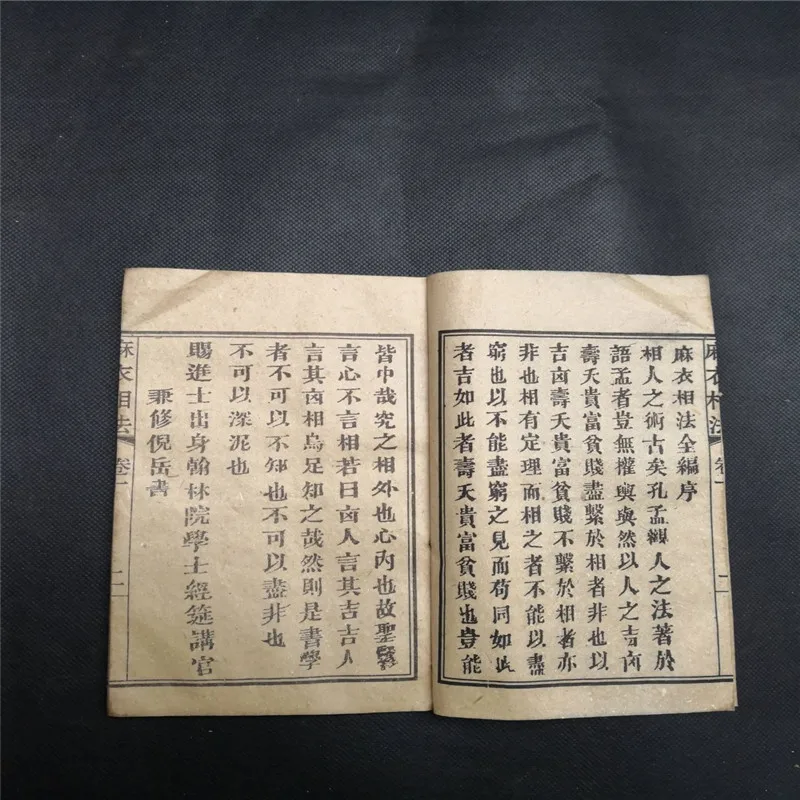 麻衣相法全編序
相人之術古矣孔孟觀人之法著於
語孟者豈無權輿與然以人之吉凶
壽夭貴富貧賤盡繫於相者非也以
吉凶壽夭貴富貧賤不繫於相者亦
非也相有定理而相之者不能以盡
窮也以不能盡窮之見而苟同如此
者吉如此者壽夭貴富貧賤也豈能
皆中哉究之相外也心內也故聖賢
言心不言相若曰凶人言其吉吉人
言其凶相烏足知之哉然則是書學
者不可以不知也不可以盡非也
不可以深泥也
賜進士出身翰林院學士經筵講官
兼修倪岳書
麻衣相法 卷一 二
麻衣相法 卷一 二